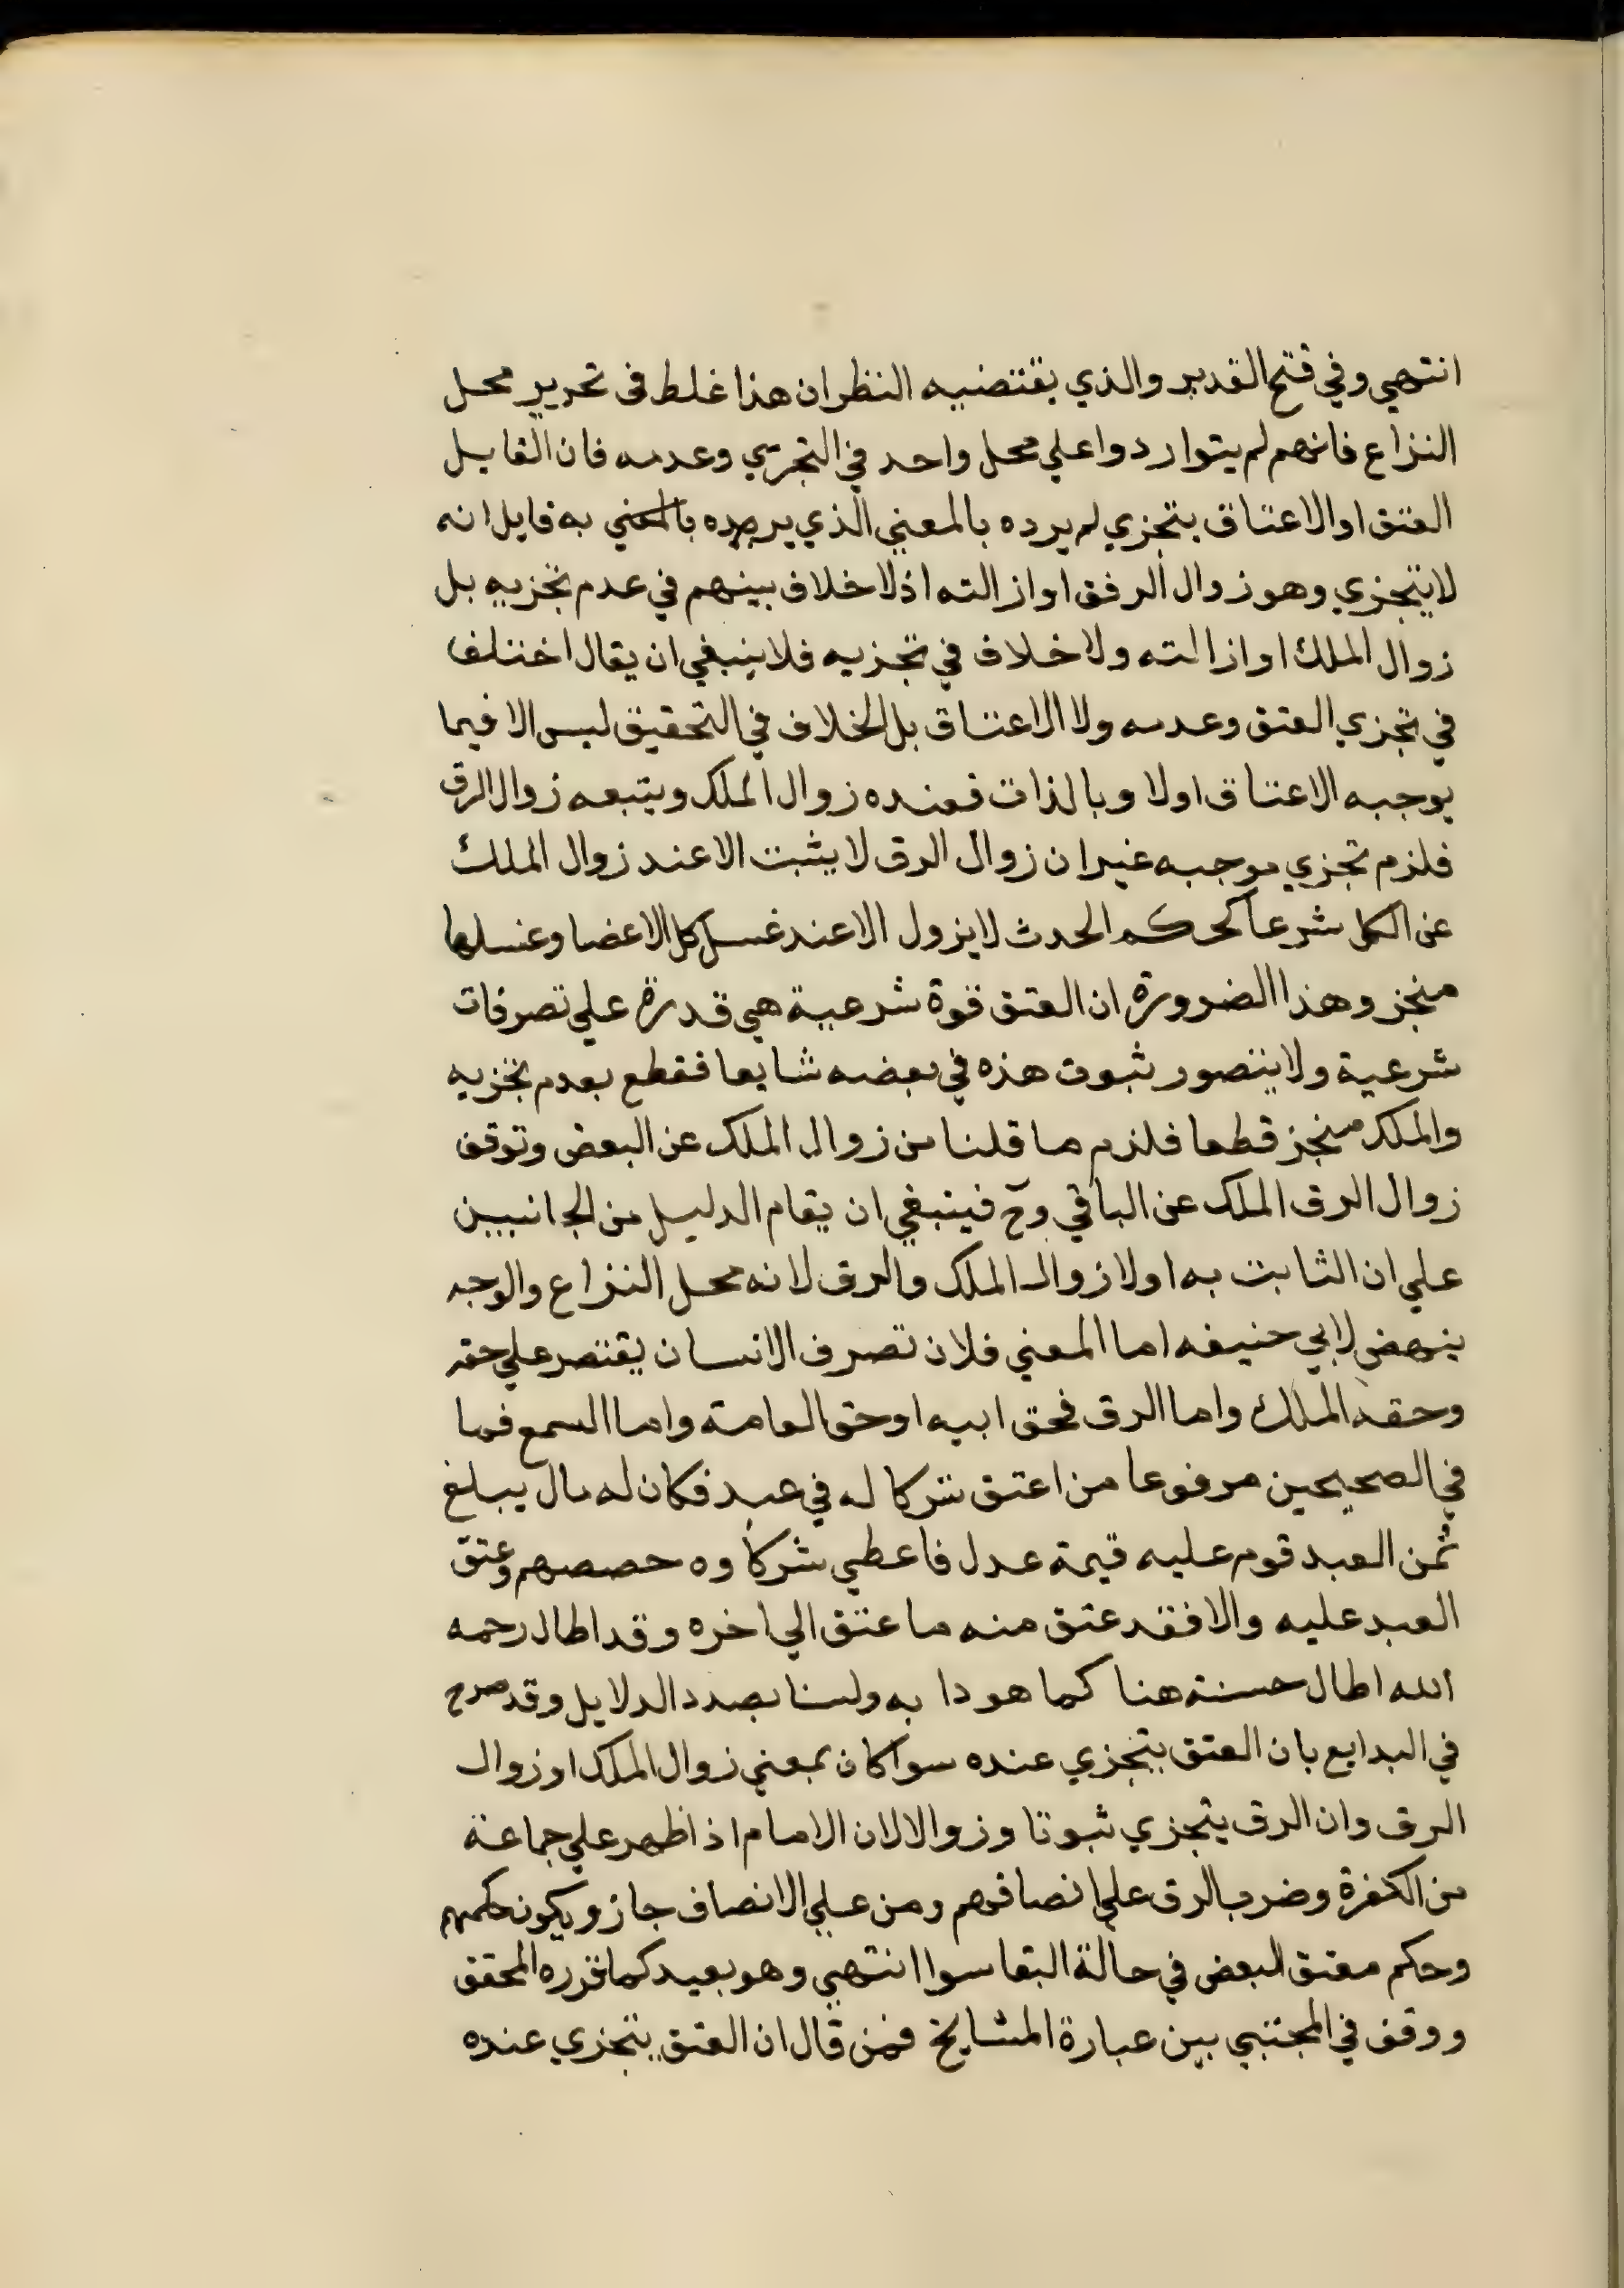 انتهي وفي فتح القدير والذي يقتضيه النظر ان هذا غلط في تحرير محل
النزاع فانهم لم يتواردوا علي محل واحد في التجزي وعدمه فان القايل
العتق او الاعتاق يتجزي لم يرده بالمعني الذي يريده به قايل انه
لا يتجزي وهو زوال الرقق او ازالته اذ لا خلاف بينهم في عدم تجزيه بل
زوال الملك او ازالته ولا خلاف في تجزيه فلا ينبغي ان يقال اختلف
في تجزي العتق وعدمه ولا الاعتاق بل الخلاف في التحقيق ليس الا فيما
يوجبه الاعتاق اولا وبالذات فعنده زوال الملك ويتبعه زوال الرق
فلزم تجزي موجبه غير ان زوال الرق لا يثبت الا عند زوال الملك
عن الكل شرعا كحكم الحدث لا يزول الا عند غسل كل الاعضا وغسلها
متجز وهذا الضرورة ان العتق قوة شرعية هي قدرة علي تصرفات
شرعية ولا يتصور ثبوت هذه في بعضه شايعا فقطع بعدم تجزيه
والملك متجز قطعا فلزم ما قلنا من زوال الملك عن البعض وتوقف
زوال الرق الملك عن الباقي وح فينبغي ان يقام الدليل من الجانبين
علي ان الثابت به اولا زوال الملك والرق لانه محل النزاع والوجه
ينهض لابي حنيفه اما المعني فلان تصرف الانسان يقتصر علي حقه
وحقه الملك واما الرق فحق ابيه او حق العامة واما السمع فما
في الصحيحين مرفوعا من اعتق شركا له في عبد فكان له مال يبلغ
ثمن العبد قوم عليه قيمة عدل فاعطي شركاوه حصصهم وعتق
العبد عليه والا فقد عتق منه ما عتق الي اخره وقد اطال رحمه
الله اطال حسنة هنا كما هو دا به ولسنا بصدد الدلايل وقد صرح
في البدايع بان العتق يتجزي عنده سوا كان بمعني زوال الملك او زوال
الرق وان الرق يتجزي ثبوتا وزوالا لان الامام اذ اظهر علي جماعة
من الكفرة وضرب الرق علي انصافهم ومن علي الانصاف جاز ويكون حكمهم
وحكم معتق البعض في حالة البقا سوا انتهي وهو بعيد كما قرره المحقق
ووقف في المجتبي بين عبارة المشايخ فمن قال ان العتق يتجزي عنده